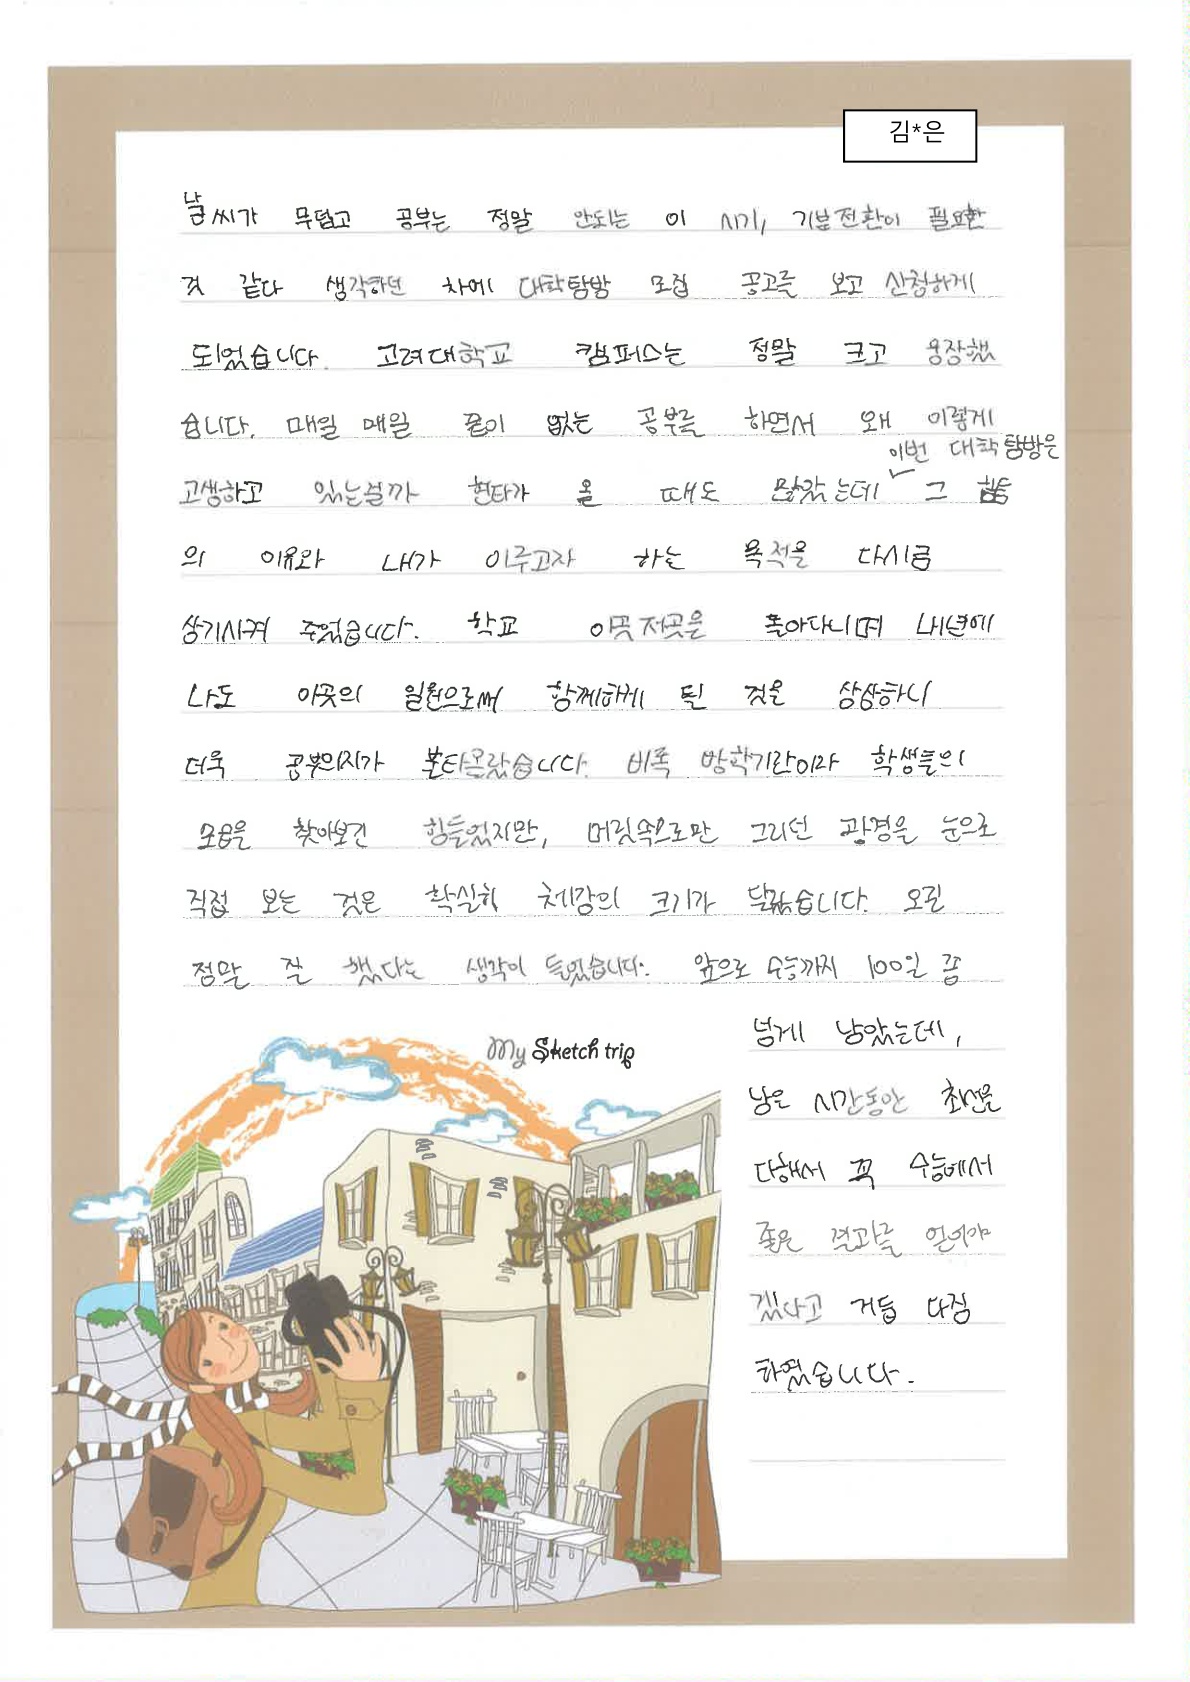 김*은
날씨가 무덥고 공부는 정말 안되는 이 시기, 기분전환이 필요한
것 같다 생각하던 차에 대학탐방 모집 공고를 보고 신청하게
되었습니다. 고려대학교 캠퍼스는 정말 크고 웅장했
습니다. 매일 매일 끝이 없는 공부를 하면서 왜 이렇게
이번 대학탐방은
고생하고 있는걸까 현타가 올 때도 많았는데 그 힘듦
의 이유와 내가 이루고자 하는 목적을 다시금
상기시켜 주었습니다. 학교 이곳저곳을 돌아다니며 내년에
나도 이곳의 일원으로써 함께하게 될 것을 상상하니
더욱 공부의지가 불타올랐습니다. 비록 방학기간이라 학생들의
모습을 찾아보긴 힘들었지만, 머릿속으로만 그리던 광경을 눈으로
직접 보는 것은 확실히 체감의 크기가 달랐습니다. 오길
정말 잘 했다는 생각이 들었습니다. 앞으로 수능까지 100일 쯤
넘게 남았는데,
남은 시간동안 최선을
다해서 꼭 수능에서
좋은 결과를 얻어야
겠다고 거듭 다짐
하였습니다.
My Sketch trip